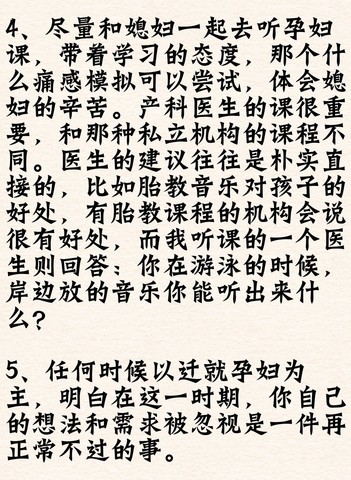 4、尽量和媳妇一起去听孕妇
课，带着学习的态度，那个什
么痛感模拟可以尝试，体会媳
妇的辛苦。产科医生的课很重
要，和那种私立机构的课程不
同。医生的建议往往是朴实直
接的，比如胎教音乐对孩子的
好处，有胎教课程的机构会说
很有好处，而我听课的一个医
生则回答：你在游泳的时候，
岸边放的音乐你能听出来什
么？
5、任何时候以迁就孕妇为
主，明白在这一时期，你自己
的想法和需求被忽视是一件再
正常不过的事。